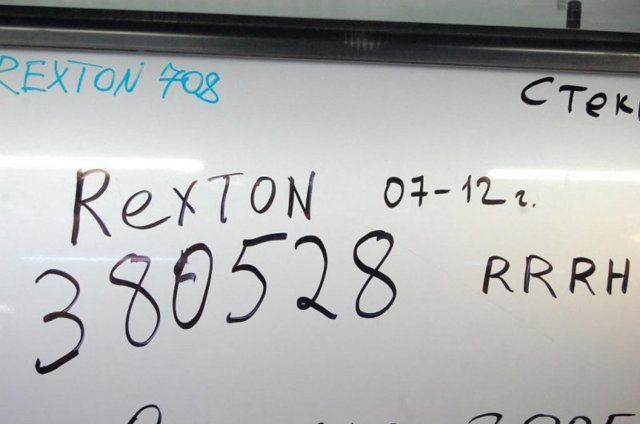 REXTON 708
RexTON 07-12 г.
380528 RRRH